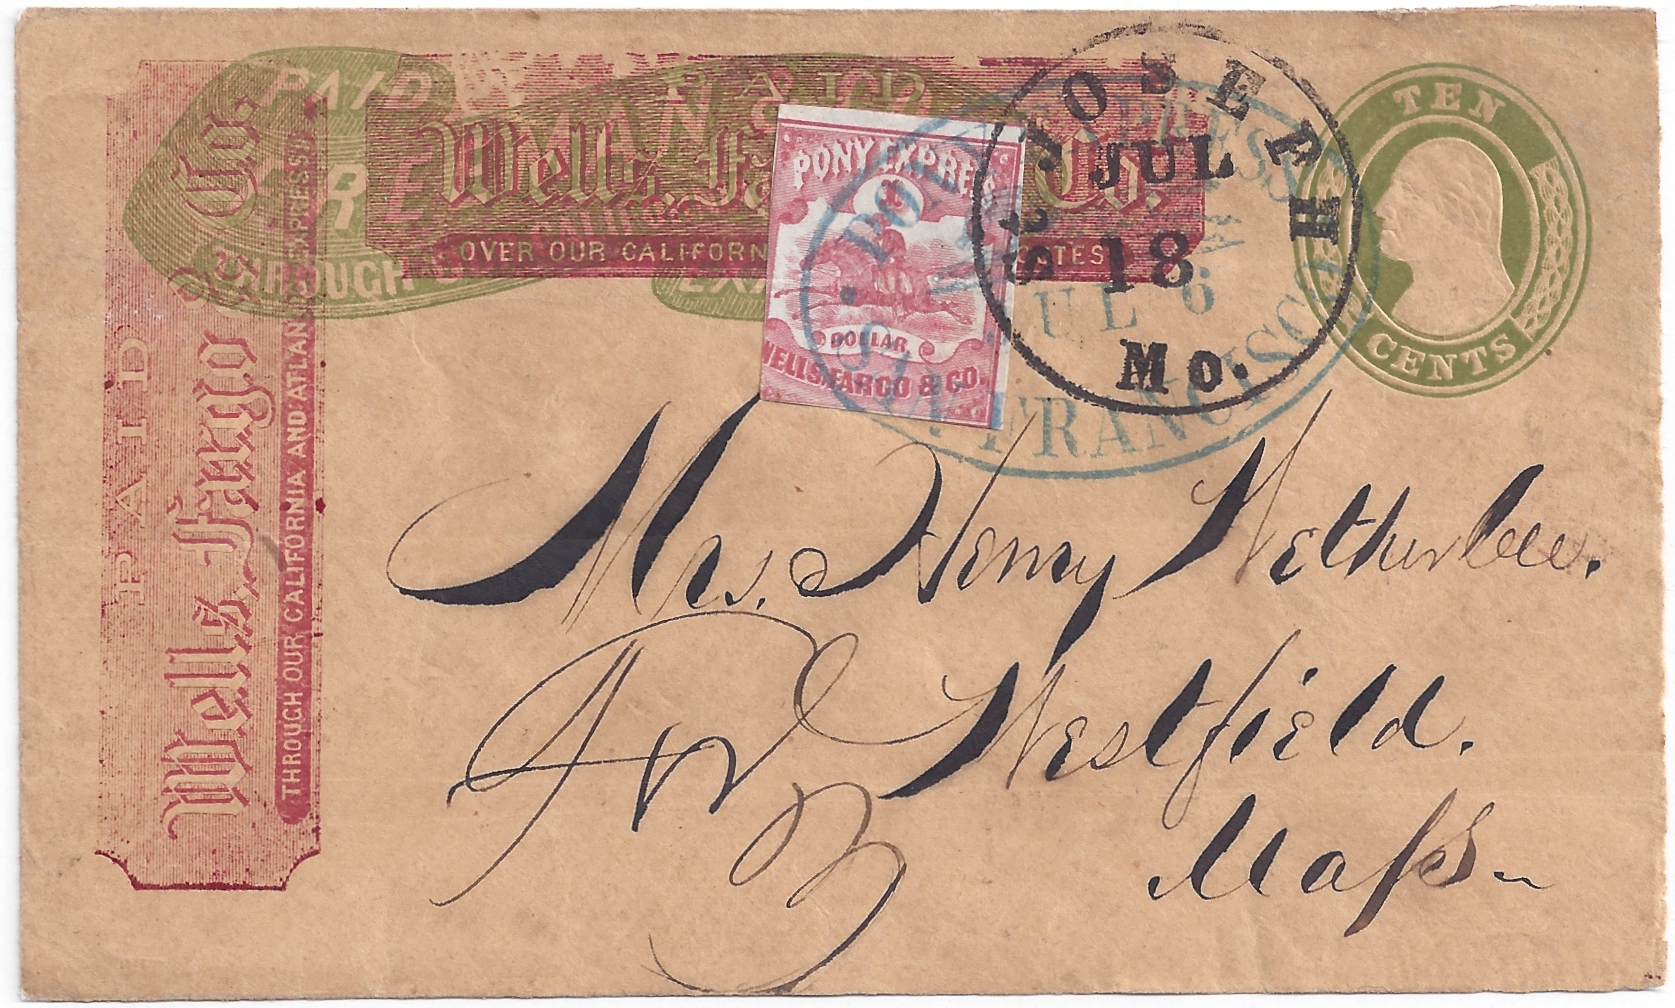 PAID
FREE
THROUGH
PAID
Wells, Fargo & Co.
OVER OUR CALIFORN
ATES
PAID
Wells, Fargo & Co.
THROUGH OUR CALIFORNIA AND ATLAN EXPRESS.
PONY EXPRE
DOLLAR
WELLS, FARGO & CO.
PONY EXPRESS
JUL 6
SAN FRANCISCO
ST JOSEPH
JUL
18
Mo.
TEN
CENTS
Mrs. Henry Wetherbee.
Westfield.
Mass